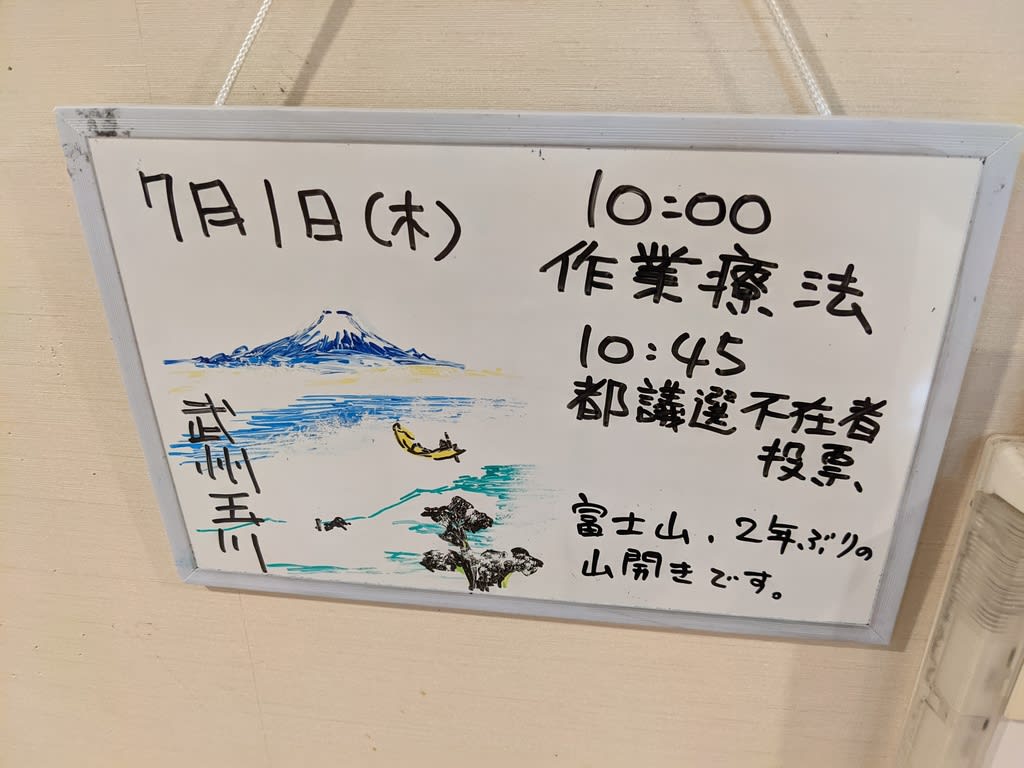 7月1日(木)
10:00
作業療法
10:45
都議選不在者
投票
富士山、2年ぶりの
山開きです。
武州玉川